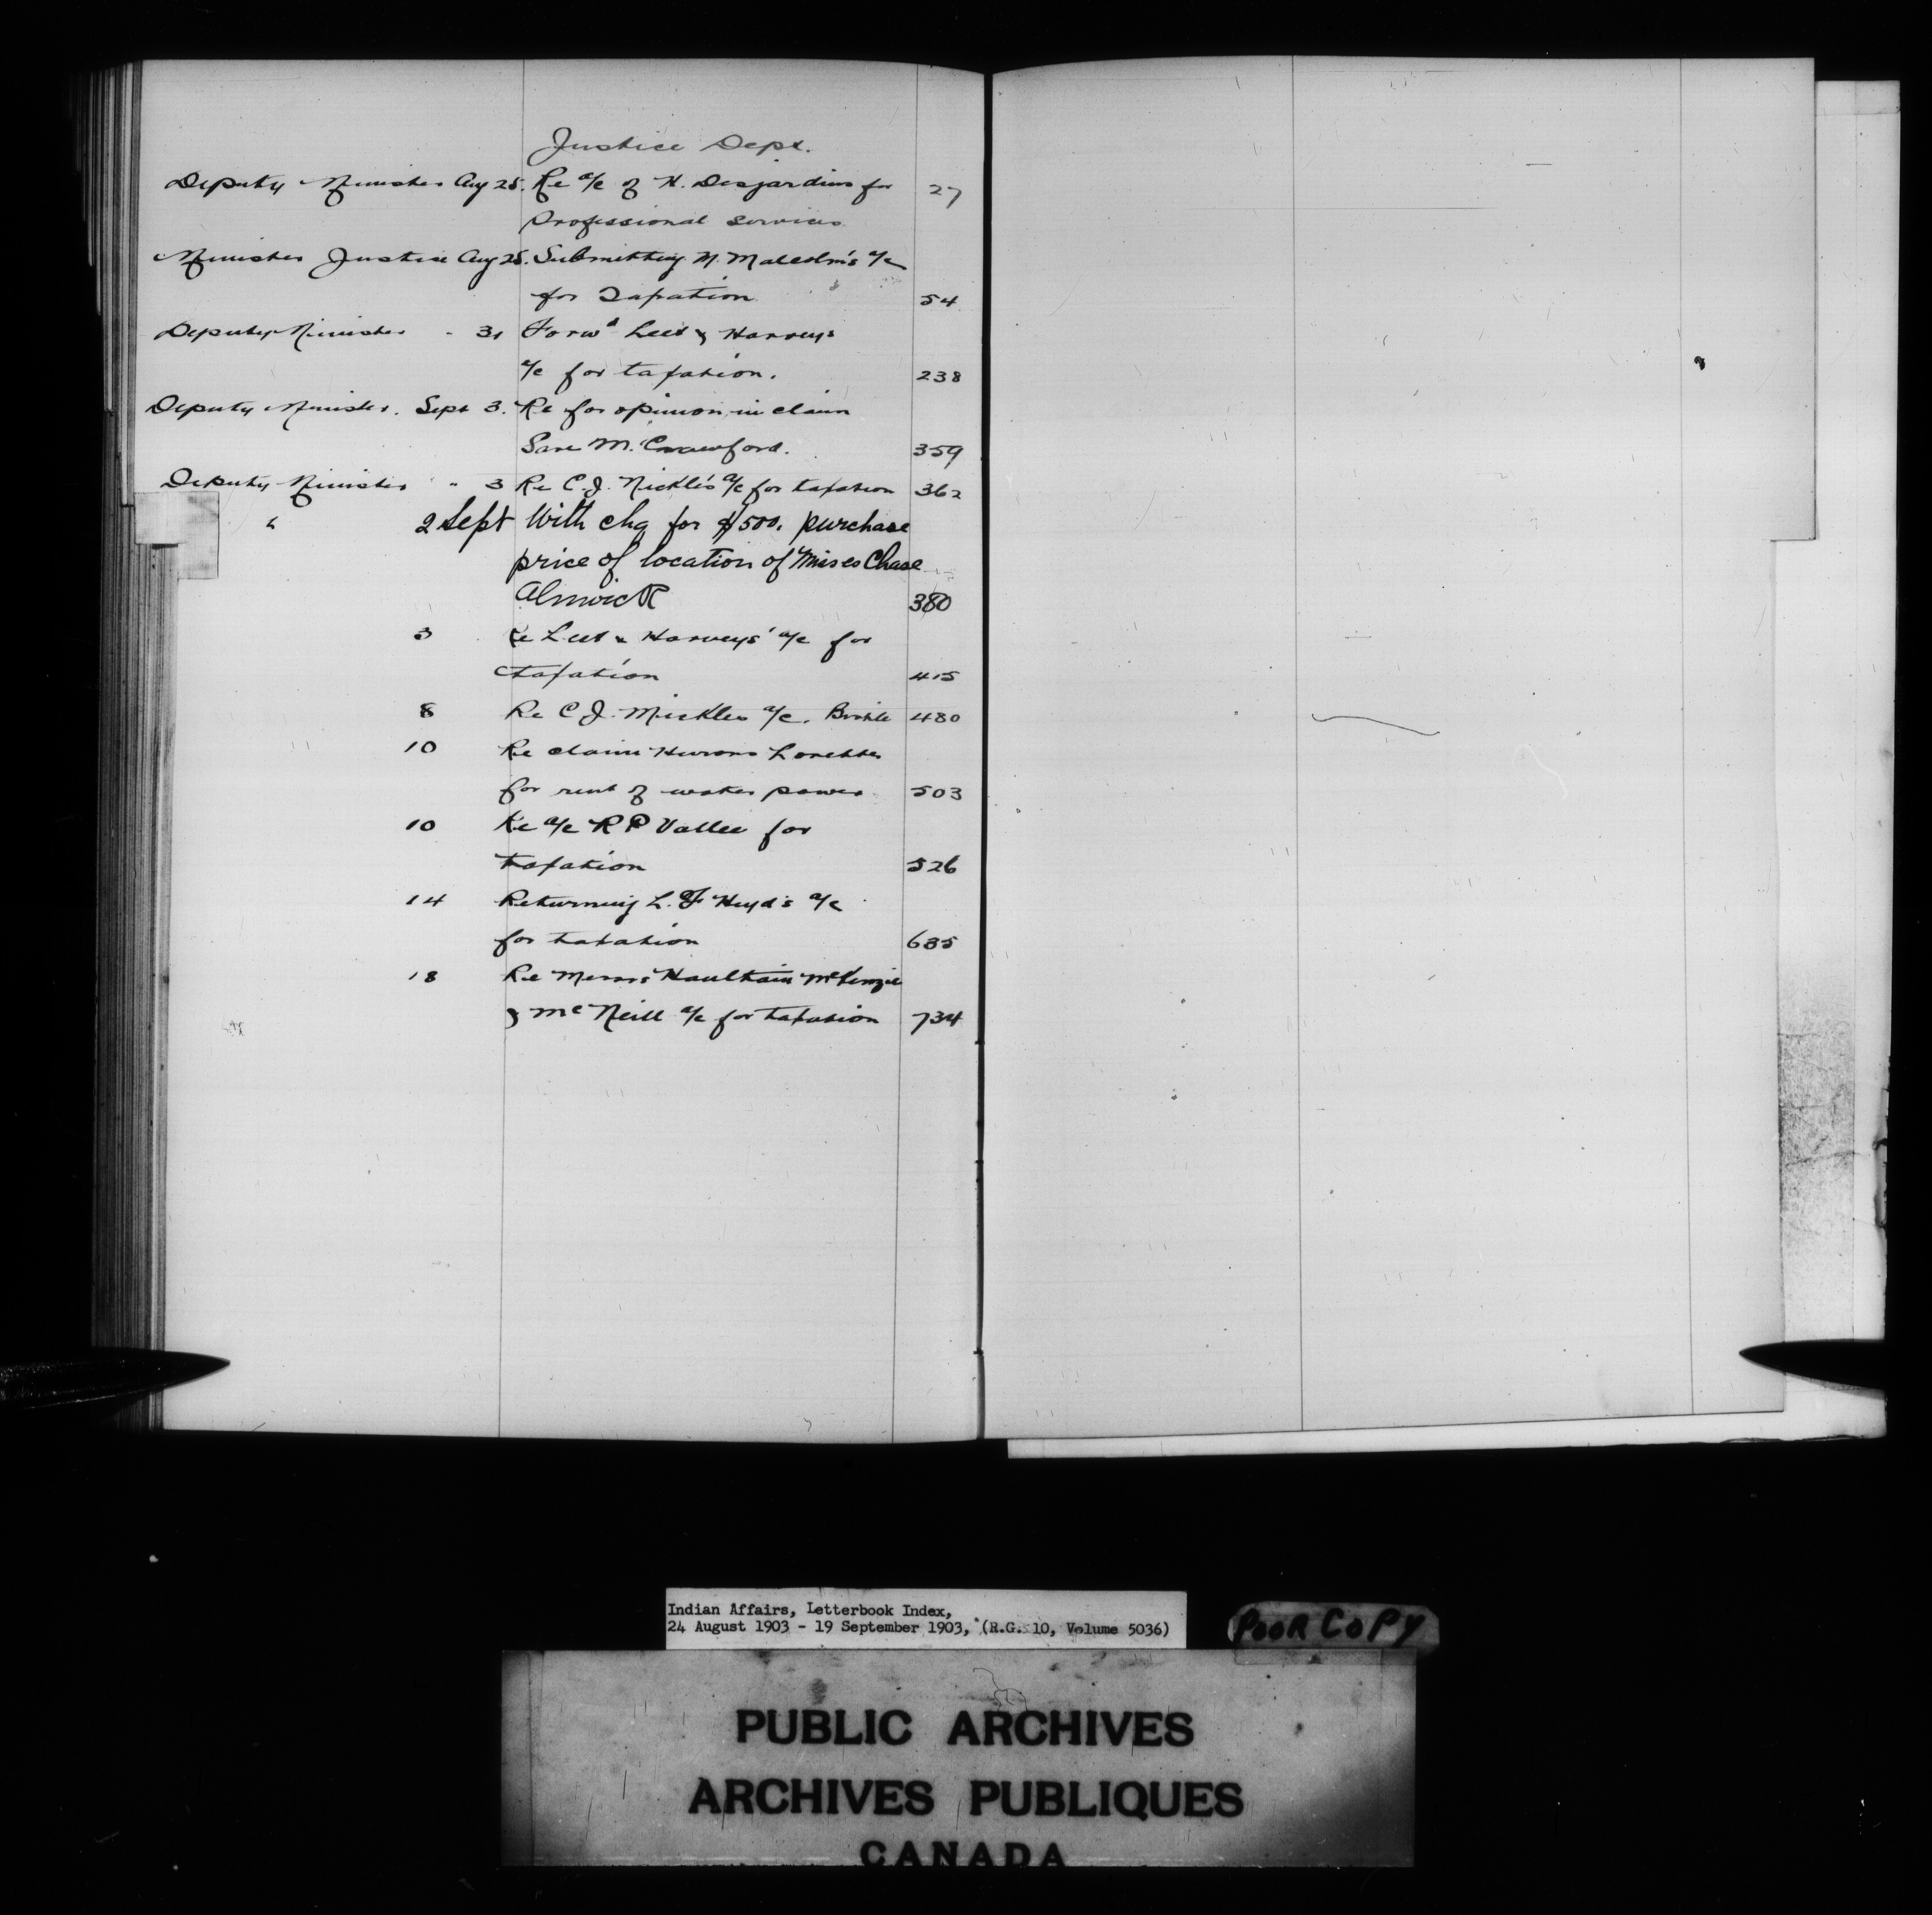 Justice Dept.
Deputy Minister Aug 25. Re a/c of H. Desjardins for 27
Professional services
Minister Justice Aug 25. Submitting M. Malcolm's a/c
for Taxation 54
Deputy Minister " 31 Forwd Leet & Harveys
a/c for taxation. 238
Deputy Minister. Sept 3. Re for opinion in claim
M. Crawford. 359
Deputy Minister " 3 Re C.J. Mickle's a/c for taxation 362
" 2 Sept With chq for $500. purchase
price of location of Moses Chase
Alnwick 380
3 Re Leet & Harveys' a/c for
taxation 415
8 Re C.J. Mickles a/c. 480
10 Re claim Hurons Lorette
for rent of water power 503
10 Re a/c R P Vallee for
taxation 526
14 Returning L. F Heyd's a/c
for taxation 635
18 Re Messrs Haultain McKenzie
& McNeill a/c for taxation 734
Indian Affairs, Letterbook Index,
24 August 1903 - 19 September 1903, (R.G. 10, Volume 5036)
POOR COPY
PUBLIC ARCHIVES
ARCHIVES PUBLIQUES
CANADA